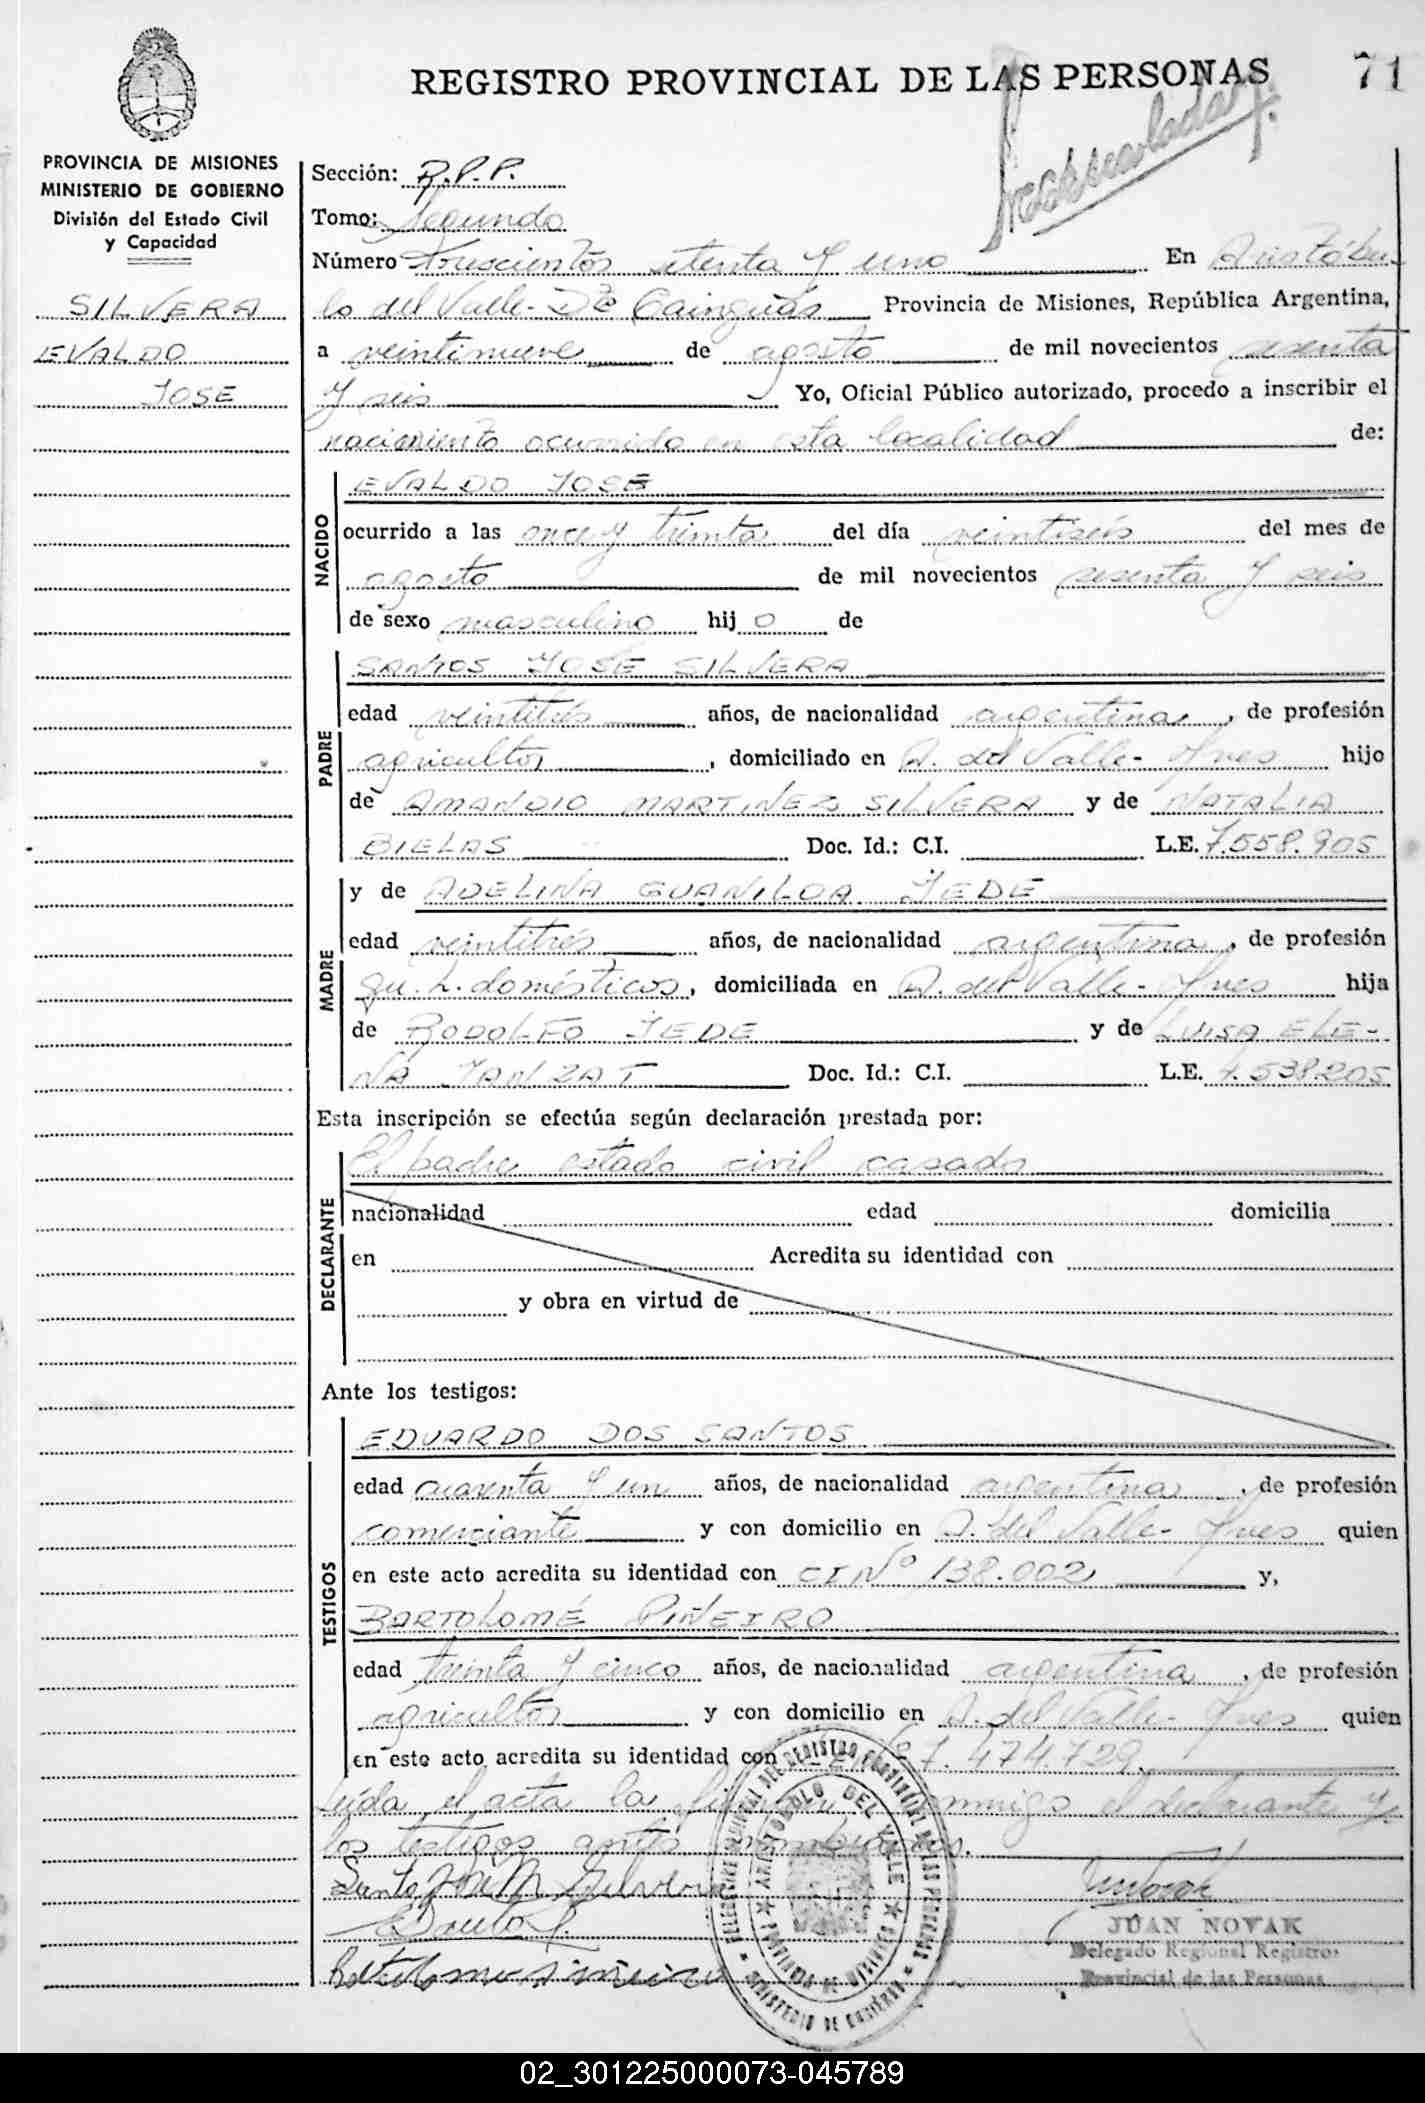 REGISTRO PROVINCIAL DE LAS PERSONAS 71
PROVINCIA DE MISIONES
MINISTERIO DE GOBIERNO
División del Estado Civil
y Capacidad
SILVERA
EVALDO
JOSE
Sección: R.P.P.
Tomo: Segundo
Número Trescientos setenta y uno En Aristóbu-
lo del Valle- Dto Cainguás Provincia de Misiones, República Argentina,
a veintinueve de agosto de mil novecientos sesenta
y seis Yo, Oficial Público autorizado, procedo a inscribir el
nacimiento ocurrido en esta localidad de:
NACIDO
EVALDO JOSE
ocurrido a las once y treinta del día veintiséis del mes de
agosto de mil novecientos sesenta y seis
de sexo masculino hij o de
PADRE
SANTOS JOSE SILVERA
edad veintitrés años, de nacionalidad argentina, de profesión
agricultor, domiciliado en A. del Valle- Mnes hijo
de AMANDIO MARTINEZ SILVERA y de NATALIA
BIELAS Doc. Id.: C.I. L.E. 7.558.905
MADRE
y de ADELINA GUANILDA JEDE
edad veintitrés años, de nacionalidad argentina, de profesión
qu. h. domésticos, domiciliada en A. del Valle- Mnes hija
de RODOLFO JEDE y de LUISA ELE-
NA JANZAT Doc. Id.: C.I. L.E. 4.538.205
Esta inscripción se efectúa según declaración prestada por:
DECLARANTE
El padre estado civil casado
nacionalidad edad domicilia
en Acredita su identidad con
y obra en virtud de
Ante los testigos:
TESTIGOS
EDUARDO DOS SANTOS
edad cuarenta y un años, de nacionalidad argentina, de profesión
comerciante y con domicilio en A. del Valle- Mnes quien
en este acto acredita su identidad con CI Nº 138.002 y,
BARTOLOMÉ PIÑEIRO
edad treinta y cinco años, de nacionalidad argentina, de profesión
agricultor y con domicilio en A. del Valle- Mnes quien
en este acto acredita su identidad con 7.474.729.
Leída el acta la firman conmigo el declarante y
los testigos antes nombrados.
JUAN NOVAK
Delegado Regional Registro
Provincial de las Personas
ARISTOBULO DEL VALLE
PROVINCIA DE MISIONES
MINISTERIO DE GOBIERNO
02_301225000073-045789